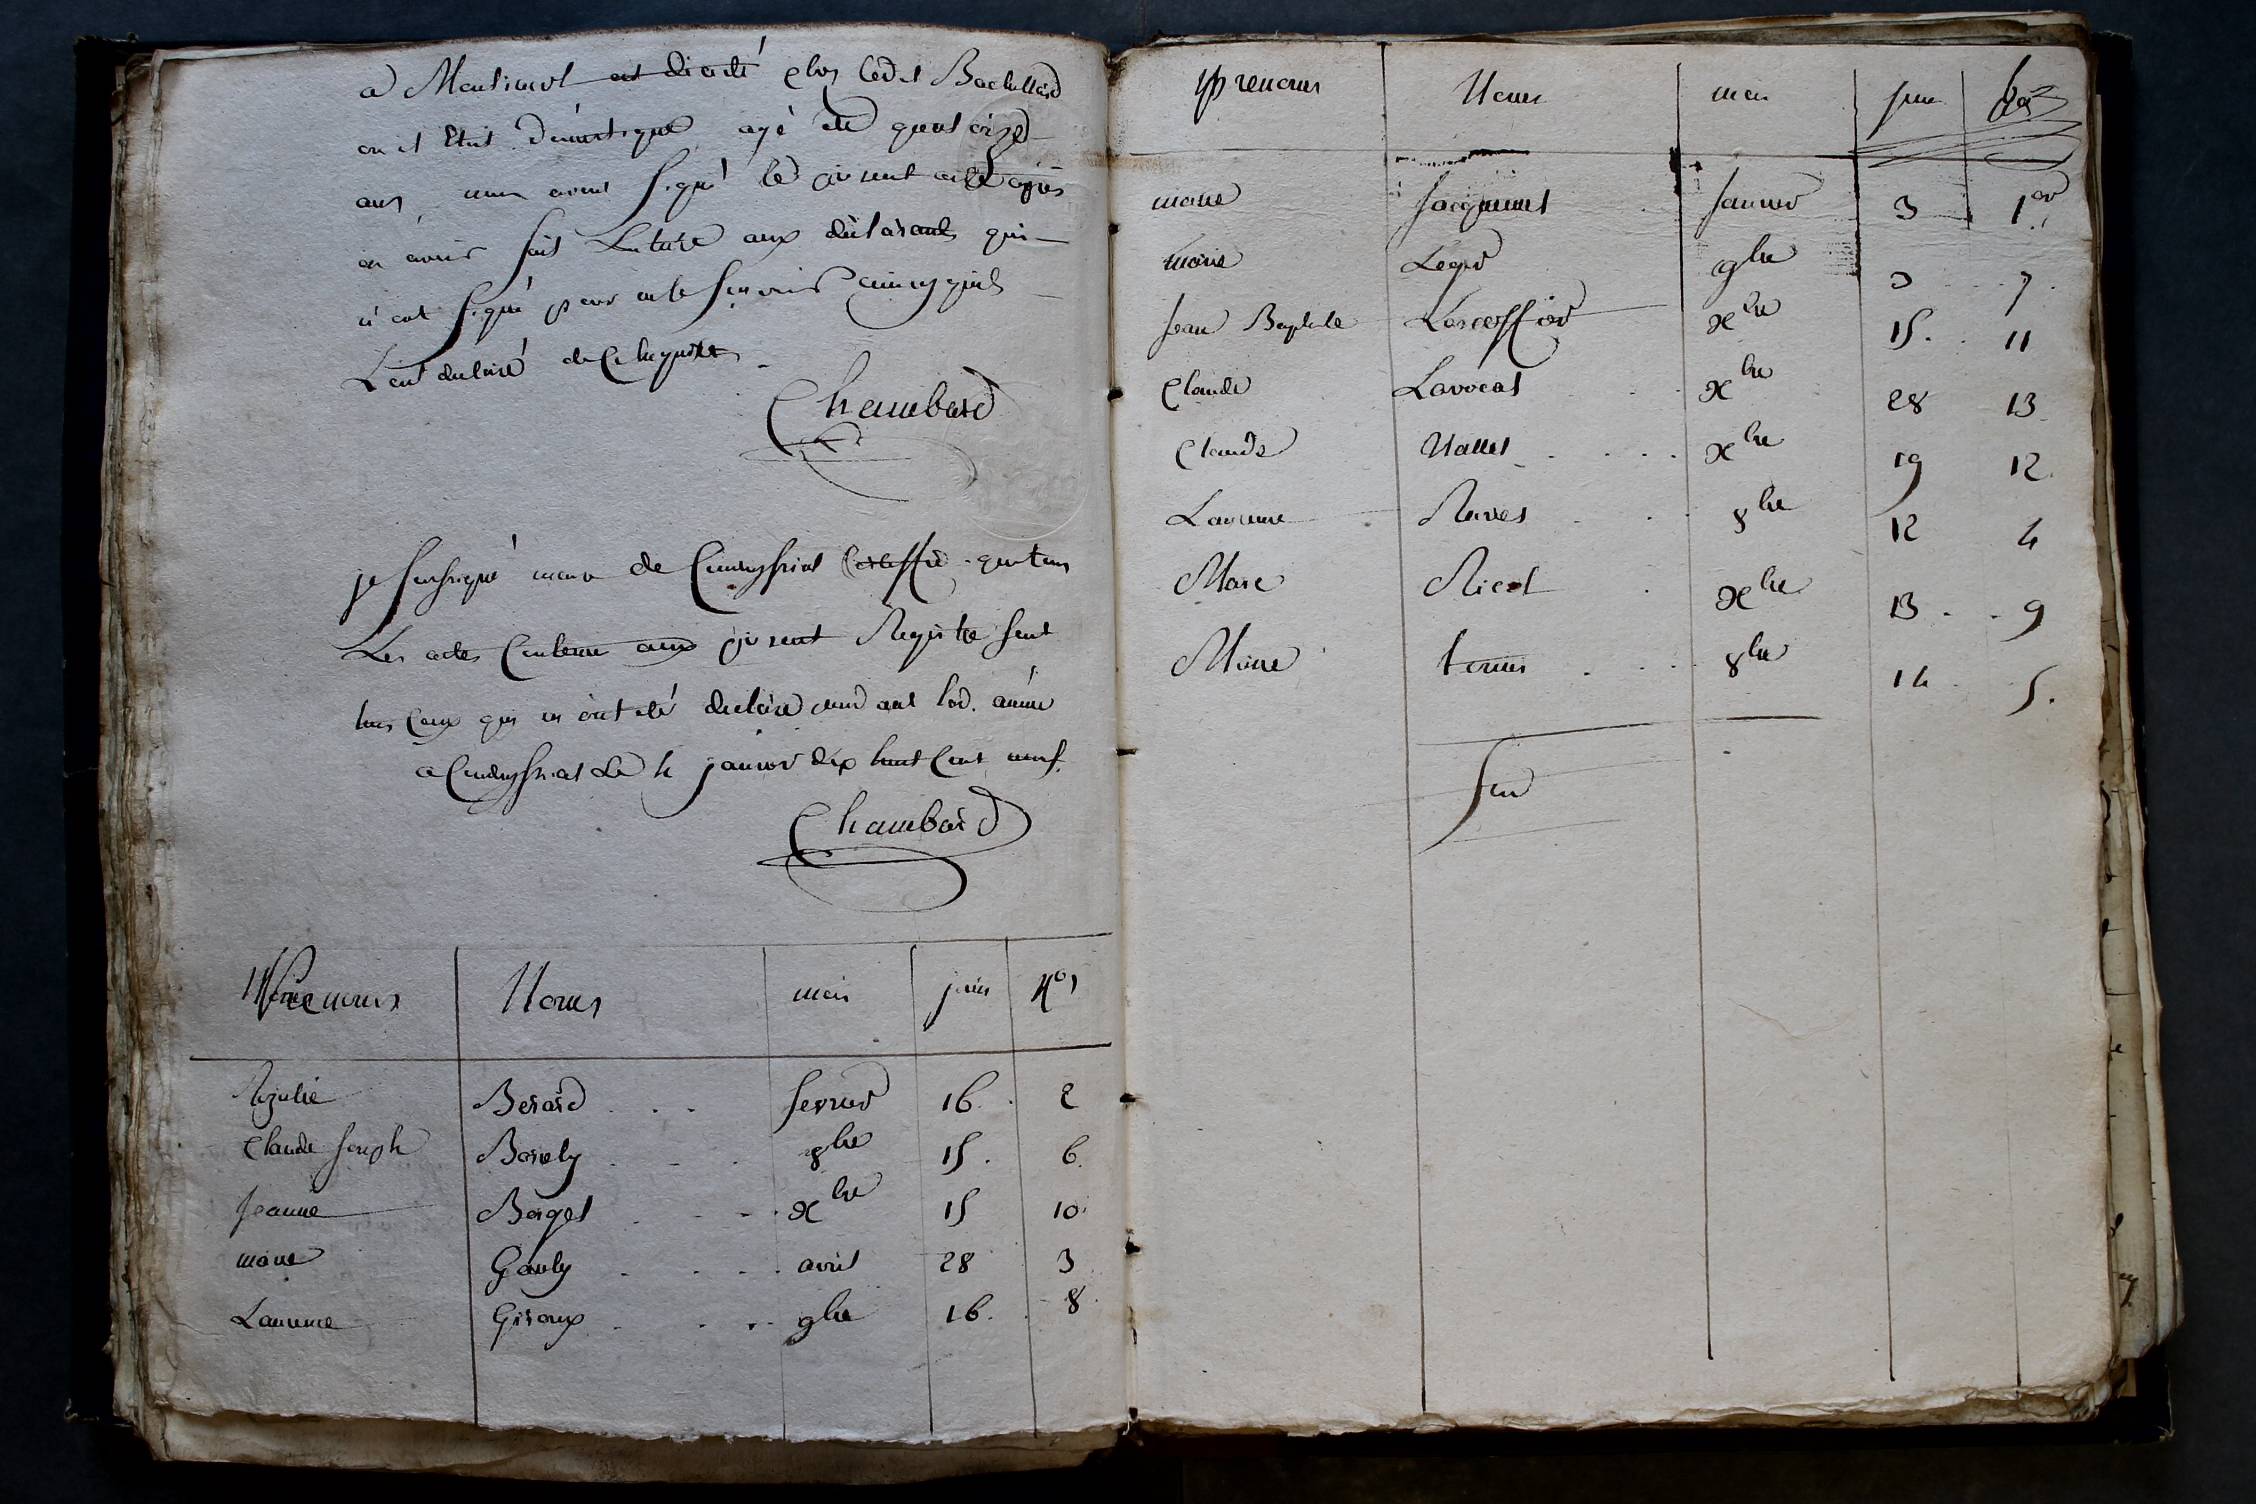 a est décédé chez led.t Bachellard
ou il étoit domestique agé de quatorze
ans nous avons signé le present acte après
en avoir fait Lecture aux déclarants qui
n'ont signé pour ne le sçavoir ainsy qu'ils
L'ont declaré de ce enquis
Chambard
je soussigné maire de certiffie que tous
Les actes Contenu aux present Registre sont
tous Ceux qui m'ont été declaré pendant lad. année
a le 4 janvier dix huit Cent neuf.
Chambard
Prenoms Noms mois jours Nos
Berard . . . fevrier 16 . 2
Claude Joseph Borely . . . 8bre 15 . 6
Jeanne Borget . . . xbre 15 10
marie Gauly . . . . avril 28 3
Laurence Giroux . . . 9bre 16 . 8
Prenoms Noms mois jour
marie Janvier 3 1er
marie Leger 9bre 3 . . 7 .
Jean Baptiste xbre 15 . . 11
Claude Lavocat . . xbre 28 13
Claude Nallet . . . . xbre 19 12
Laurence . . . 8bre 12 4
Marie Nicol . xbre 13 . . 9
. . . 8bre 14 . 5 .
fin